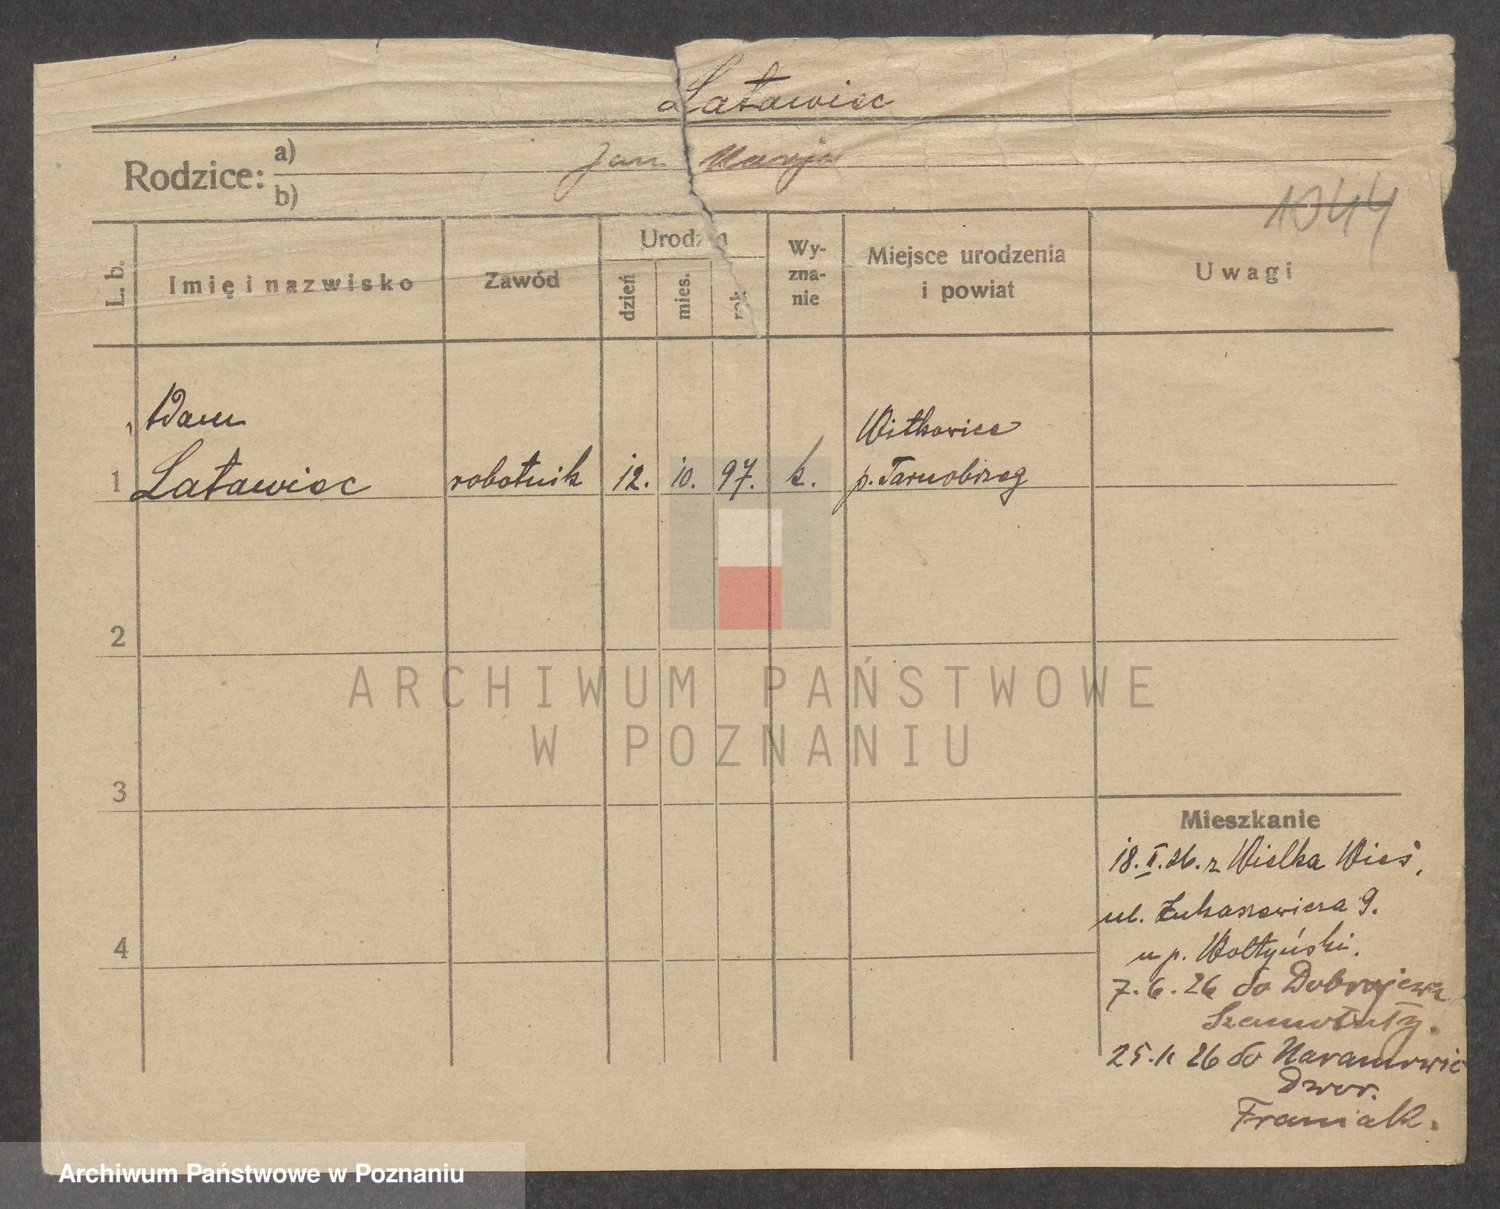 Latawiec
Rodzice: a) Jan Maryja
b)
1044
L. b.
Imię i nazwisko
Zawód
Urodzin
dzień
mies.
rok
Wy-
zna-
nie
Miejsce urodzenia
i powiat
Uwagi
Adam
Witkowice
1 Latawiec robotnik 12. 10. 97. k. p. Tarnobrzeg
2
3
4
ARCHIWUM PAŃSTWOWE
W POZNANIU
Mieszkanie
18. I. 26. z Wielka Wieś,
ul. Łukaszewicza 9.
u p. Wołtyński.
7. 6. 26 do Dobrojewa
Szamotuły.
25. 11 26 do Naramowic
Dwór.
Franiak.
Archiwum Państwowe w Poznaniu